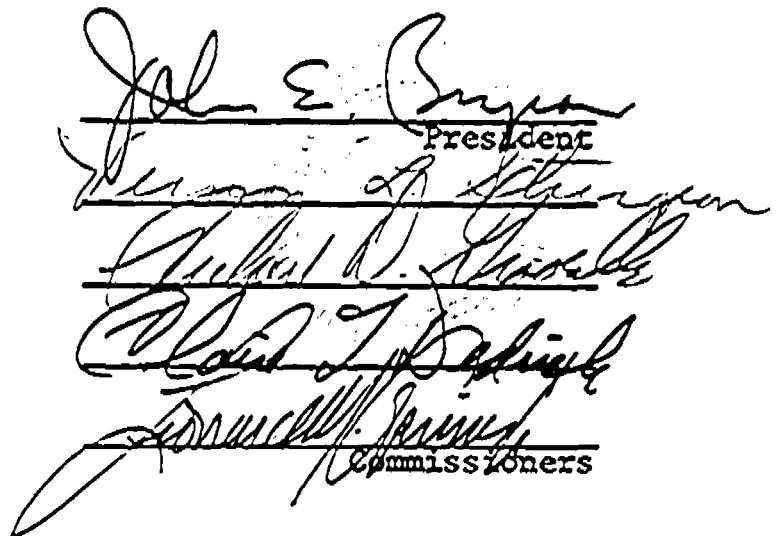 John E. Bryson
President
Vernon L. Sturgeon
Richard D. Gravelle
Claire T. Dedrick
Leonard M. Grimes
Commissioners